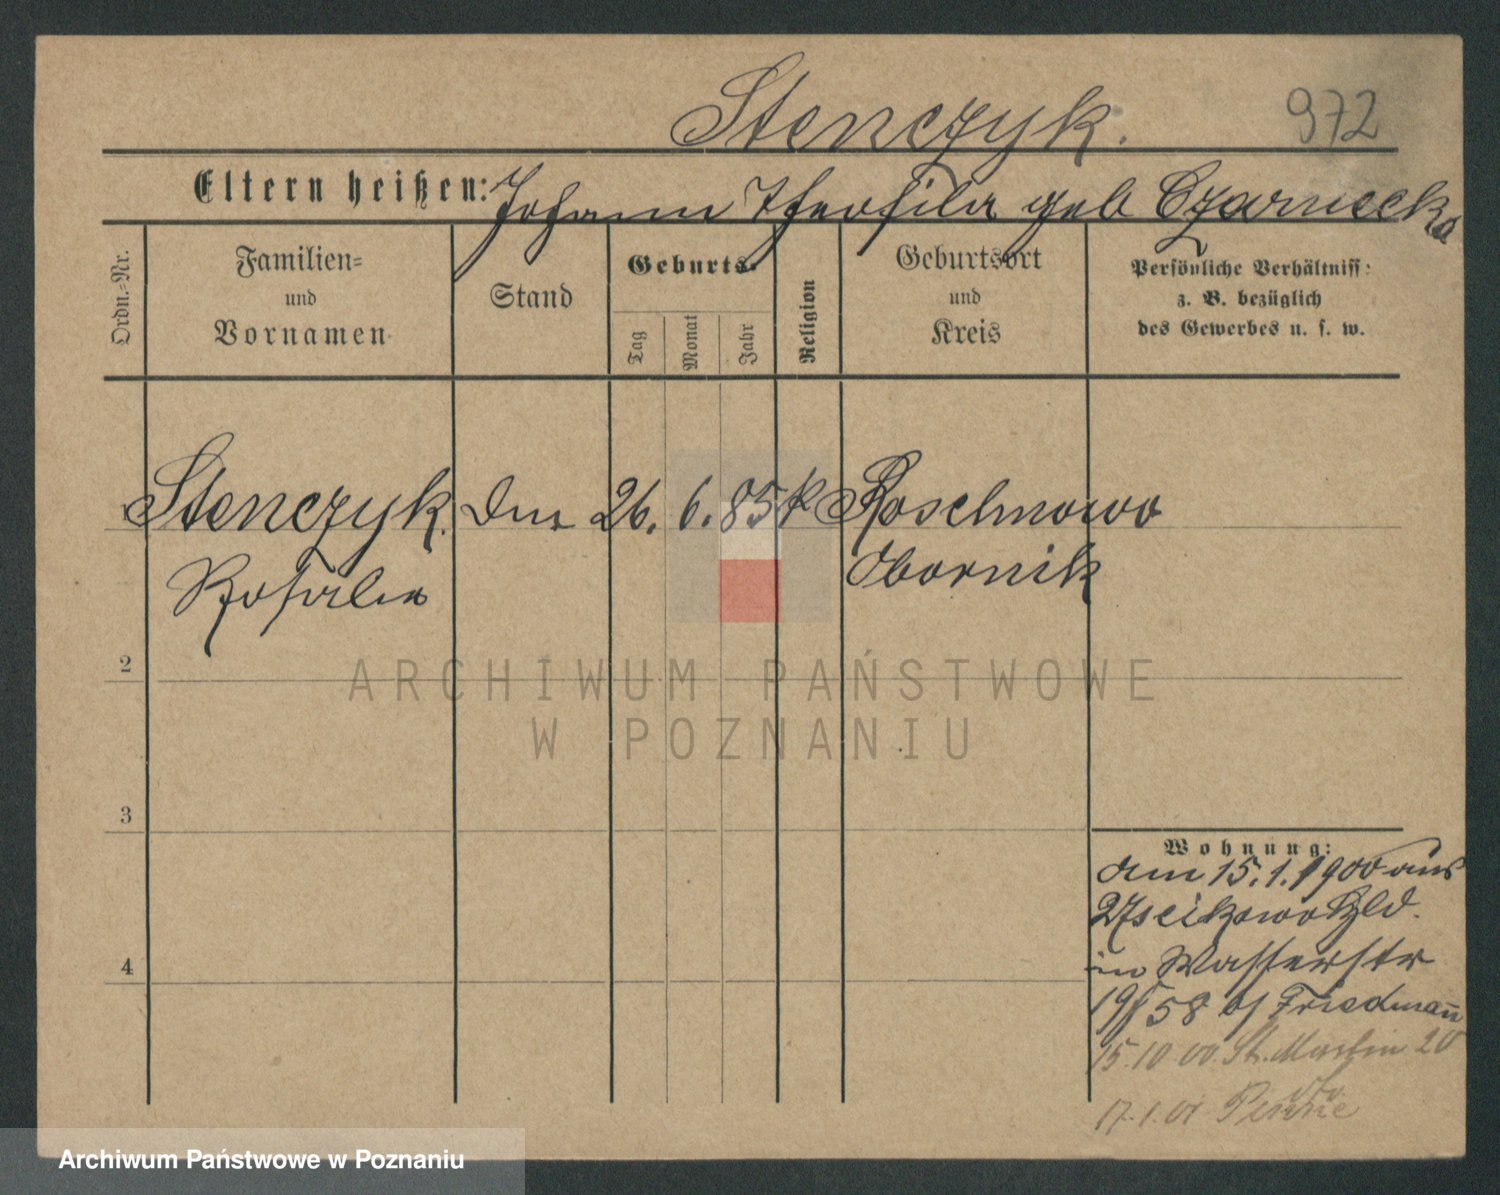 Stenczyk.
972
Eltern heißen: Johann Theofila geb Czarnecka
Ordn.-Nr.
Familien- und Vornamen
Stand
Geburts-
Tag
Monat
Jahr
Religion
Geburtsort und Kreis
Persönliche Verhältniss: z. B. bezüglich des Gewerbes u. s. w.
1 Stenczyk. 26. 6. 85 k Roschnowo
Rosalie Obornik
2
ARCHIWUM PAŃSTWOWE
W POZNANIU
3
4
Wohnung:
am 15.1.1900 aus
in Wasserstr
19/58 b/ Friedmann
15.10.00. St. Martin 20
17.1.01 Pinne
Archiwum Państwowe w Poznaniu